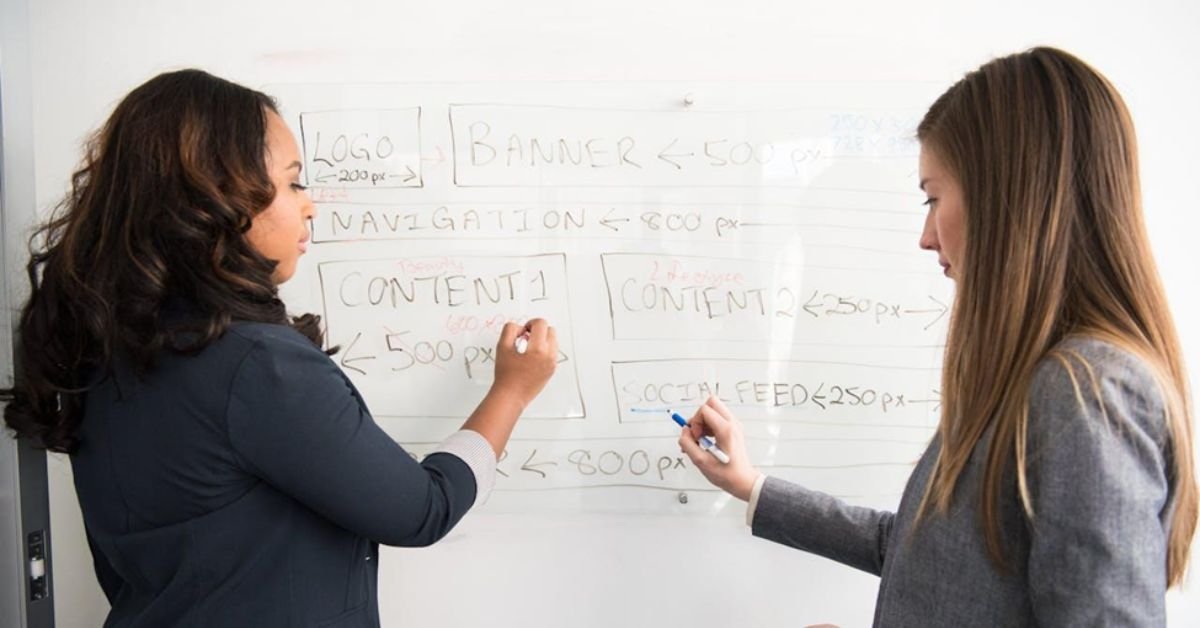 LOGO
←200px→
BANNER ← 500 px
250 X
728 X
NAVIGATION ← 800 px
Beauty
CONTENT 1
← 500 px
CONTENT 2 ←250px→
SOCIAL FEED ←250px→
R ← 800px